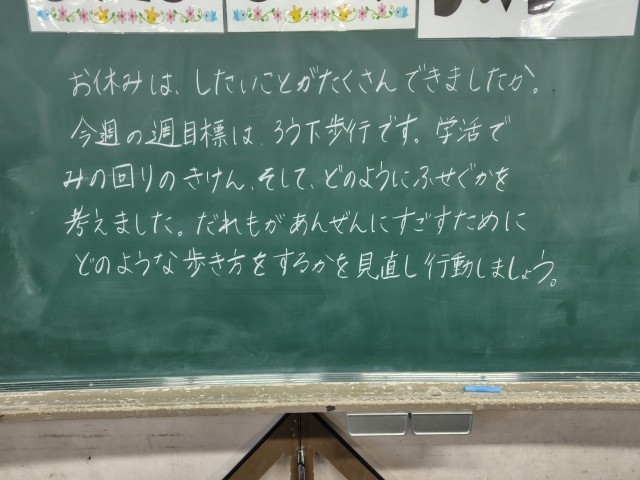 お休みは、したいことがたくさんできましたか。
今週の週目標は、ろう下歩行です。学活で
みの回りのきけん、そして、どのようにふせぐかを
考えました。だれもがあんぜんにすごすために
どのような歩き方をするかを見直し行動しましょう。